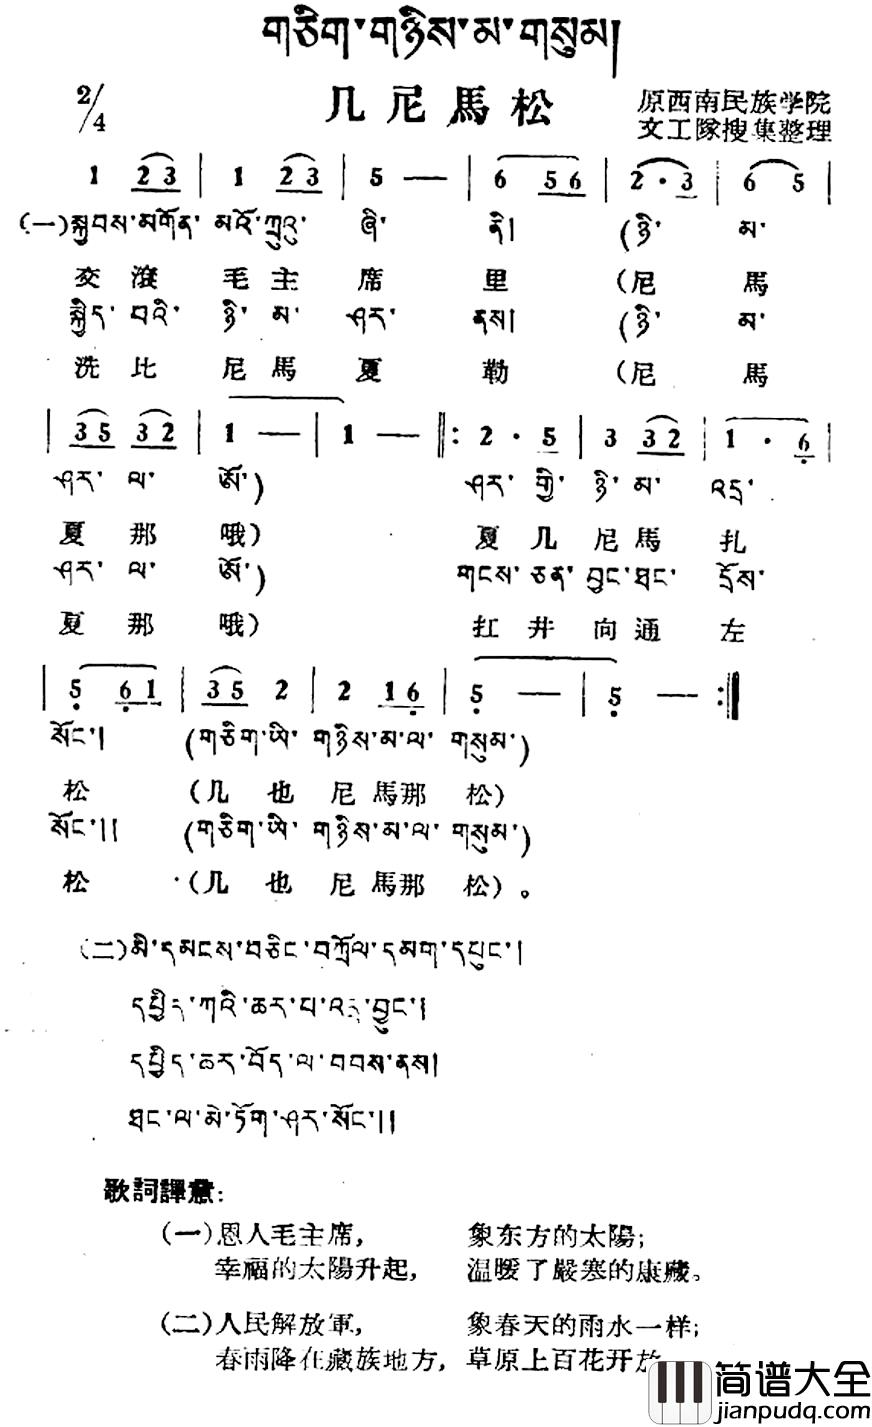 གཅིག་གཉིས་མ་གསུམ།
2/4
几尼馬松
原西南民族学院
文工隊搜集整理
1 23 | 1 23 | 5 — | 6 56 | 2 · 3 | 6 5 |
(一)སྐྱབས་མགོན་ མའོ་ཀྲུའུ་ ཞི་ ནི། (ཉི་ མ་
交滾 毛主 席 里 (尼 馬
སྐྱིད་ བའི་ ཉི་ མ་ ཤར་ ནས། (ཉི་ མ་
洗比 尼馬 夏 勒 (尼 馬
| 35 32 | 1 — | 1 — ||: 2 · 5 | 3 32 | 1 · 6 |
ཤར་ ལ་ ཨོ་) ཤར་ གྱི་ ཉི་ མ་ འདྲ་
夏 那 哦) 夏 几 尼 馬 扎
ཤར་ ལ་ ཨོ་) གངས་ ཅན་ བྱང་ཐང་ དྲོས་
夏 那 哦) 扛 井 向 通 左
| 5 61 | 35 2 | 2 16 | 5 — | 5 — :||
སོང་། (གཅིག་ཡི་ གཉིས་མ་ལ་ གསུམ་)
松 (几 也 尼 馬那 松)
སོང་།། (གཅིག་ཡི་ གཉིས་མ་ལ་ གསུམ་)
松 (几 也 尼 馬那 松)。
(二)མི་དམངས་བཅིང་བཀྲོལ་དམག་དཔུང་།
དཔྱིད་ཀའི་ཆར་པ་འདྲ་བྱུང་།
དཔྱིད་ཆར་བོད་ལ་བབས་ནས།
ཐང་ལ་མེ་ཏོག་ཤར་སོང་།།
歌詞譯意:
(一)恩人毛主席, 象东方的太陽;
幸福的太陽升起, 温暖了嚴寒的康藏。
(二)人民解放軍, 象春天的雨水一样;
春雨降在藏族地方, 草原上百花开放
简谱大全
jianpudq.com